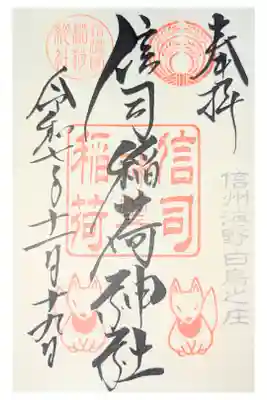 奉拝
信州海野白鳥之庄
信司稲荷神社
信司
稲荷
令和七年十一月十九日